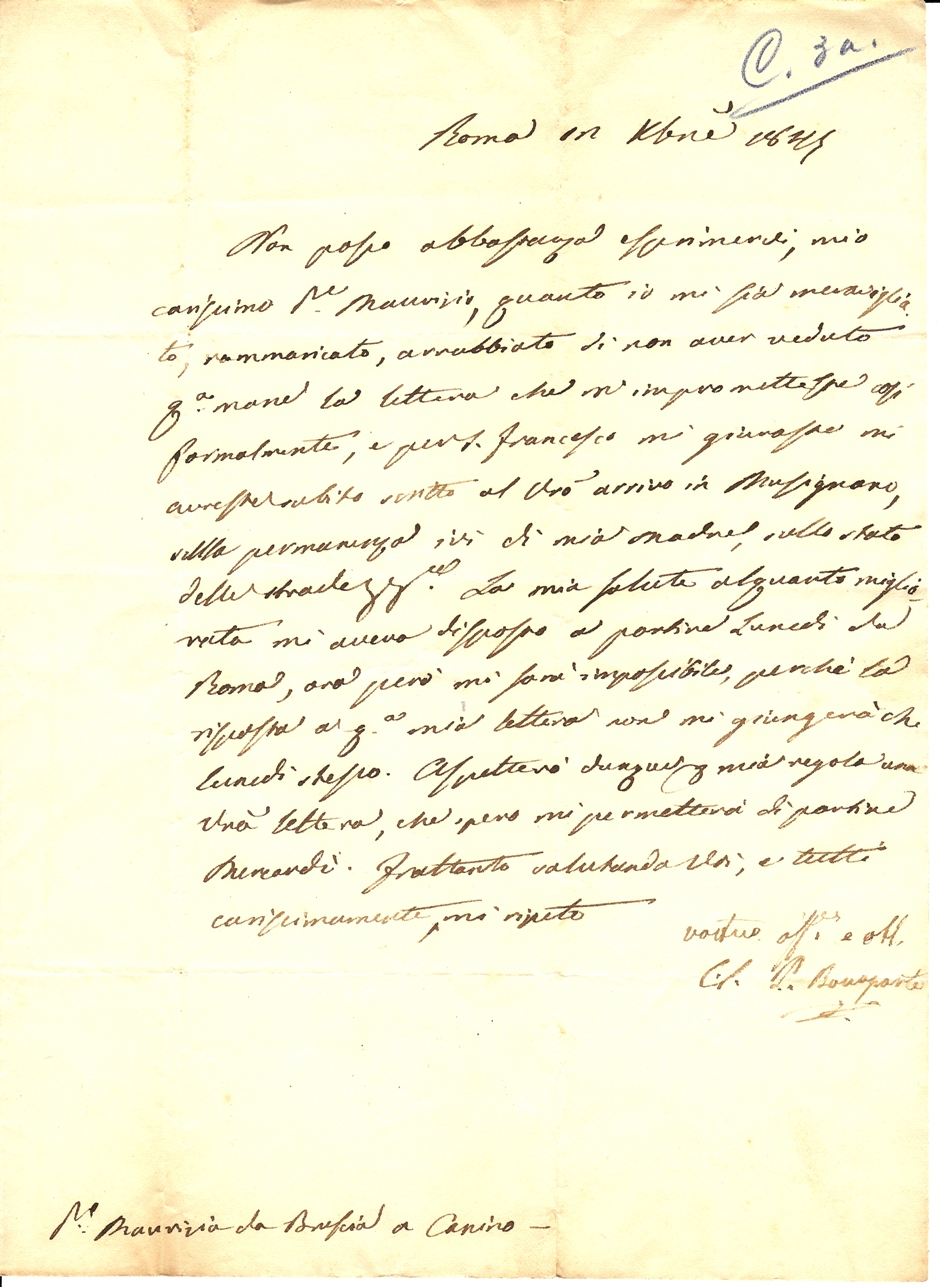 C. 3a.
Roma in Xbrē 1845
Non posso abbastanza esprimervi, mio
carissimo P.re Maurizio, quanto io mi sia meraviglia-
to, rammaricato, arrabbiato di non aver veduto
q.a mane la lettera che m'imprometteste così
formalmente, e per S. Francesco mi giuraste mi
avreste subito scritto al vrō arrivo in Musignano,
sulla permanenza ivi di mia madre, sullo stato
delle strade
La mia salute alquanto miglio-
rata mi aveva disposto a partire Lunedì da
Roma, ora però mi sarà impossibile, perchè la
risposta a q.a mia lettera non mi giungerà che
lunedì stesso. Aspetterò dunque p mia regola una
vrā lettera, che spero mi permetterà di partire
Mercordì. Frattanto salutando Voi, e tutti
carissimamente, mi ripeto
vostro aff. e obb.
C. L. P. Bonaparte
P.re Maurizio da Brescia a Canino —